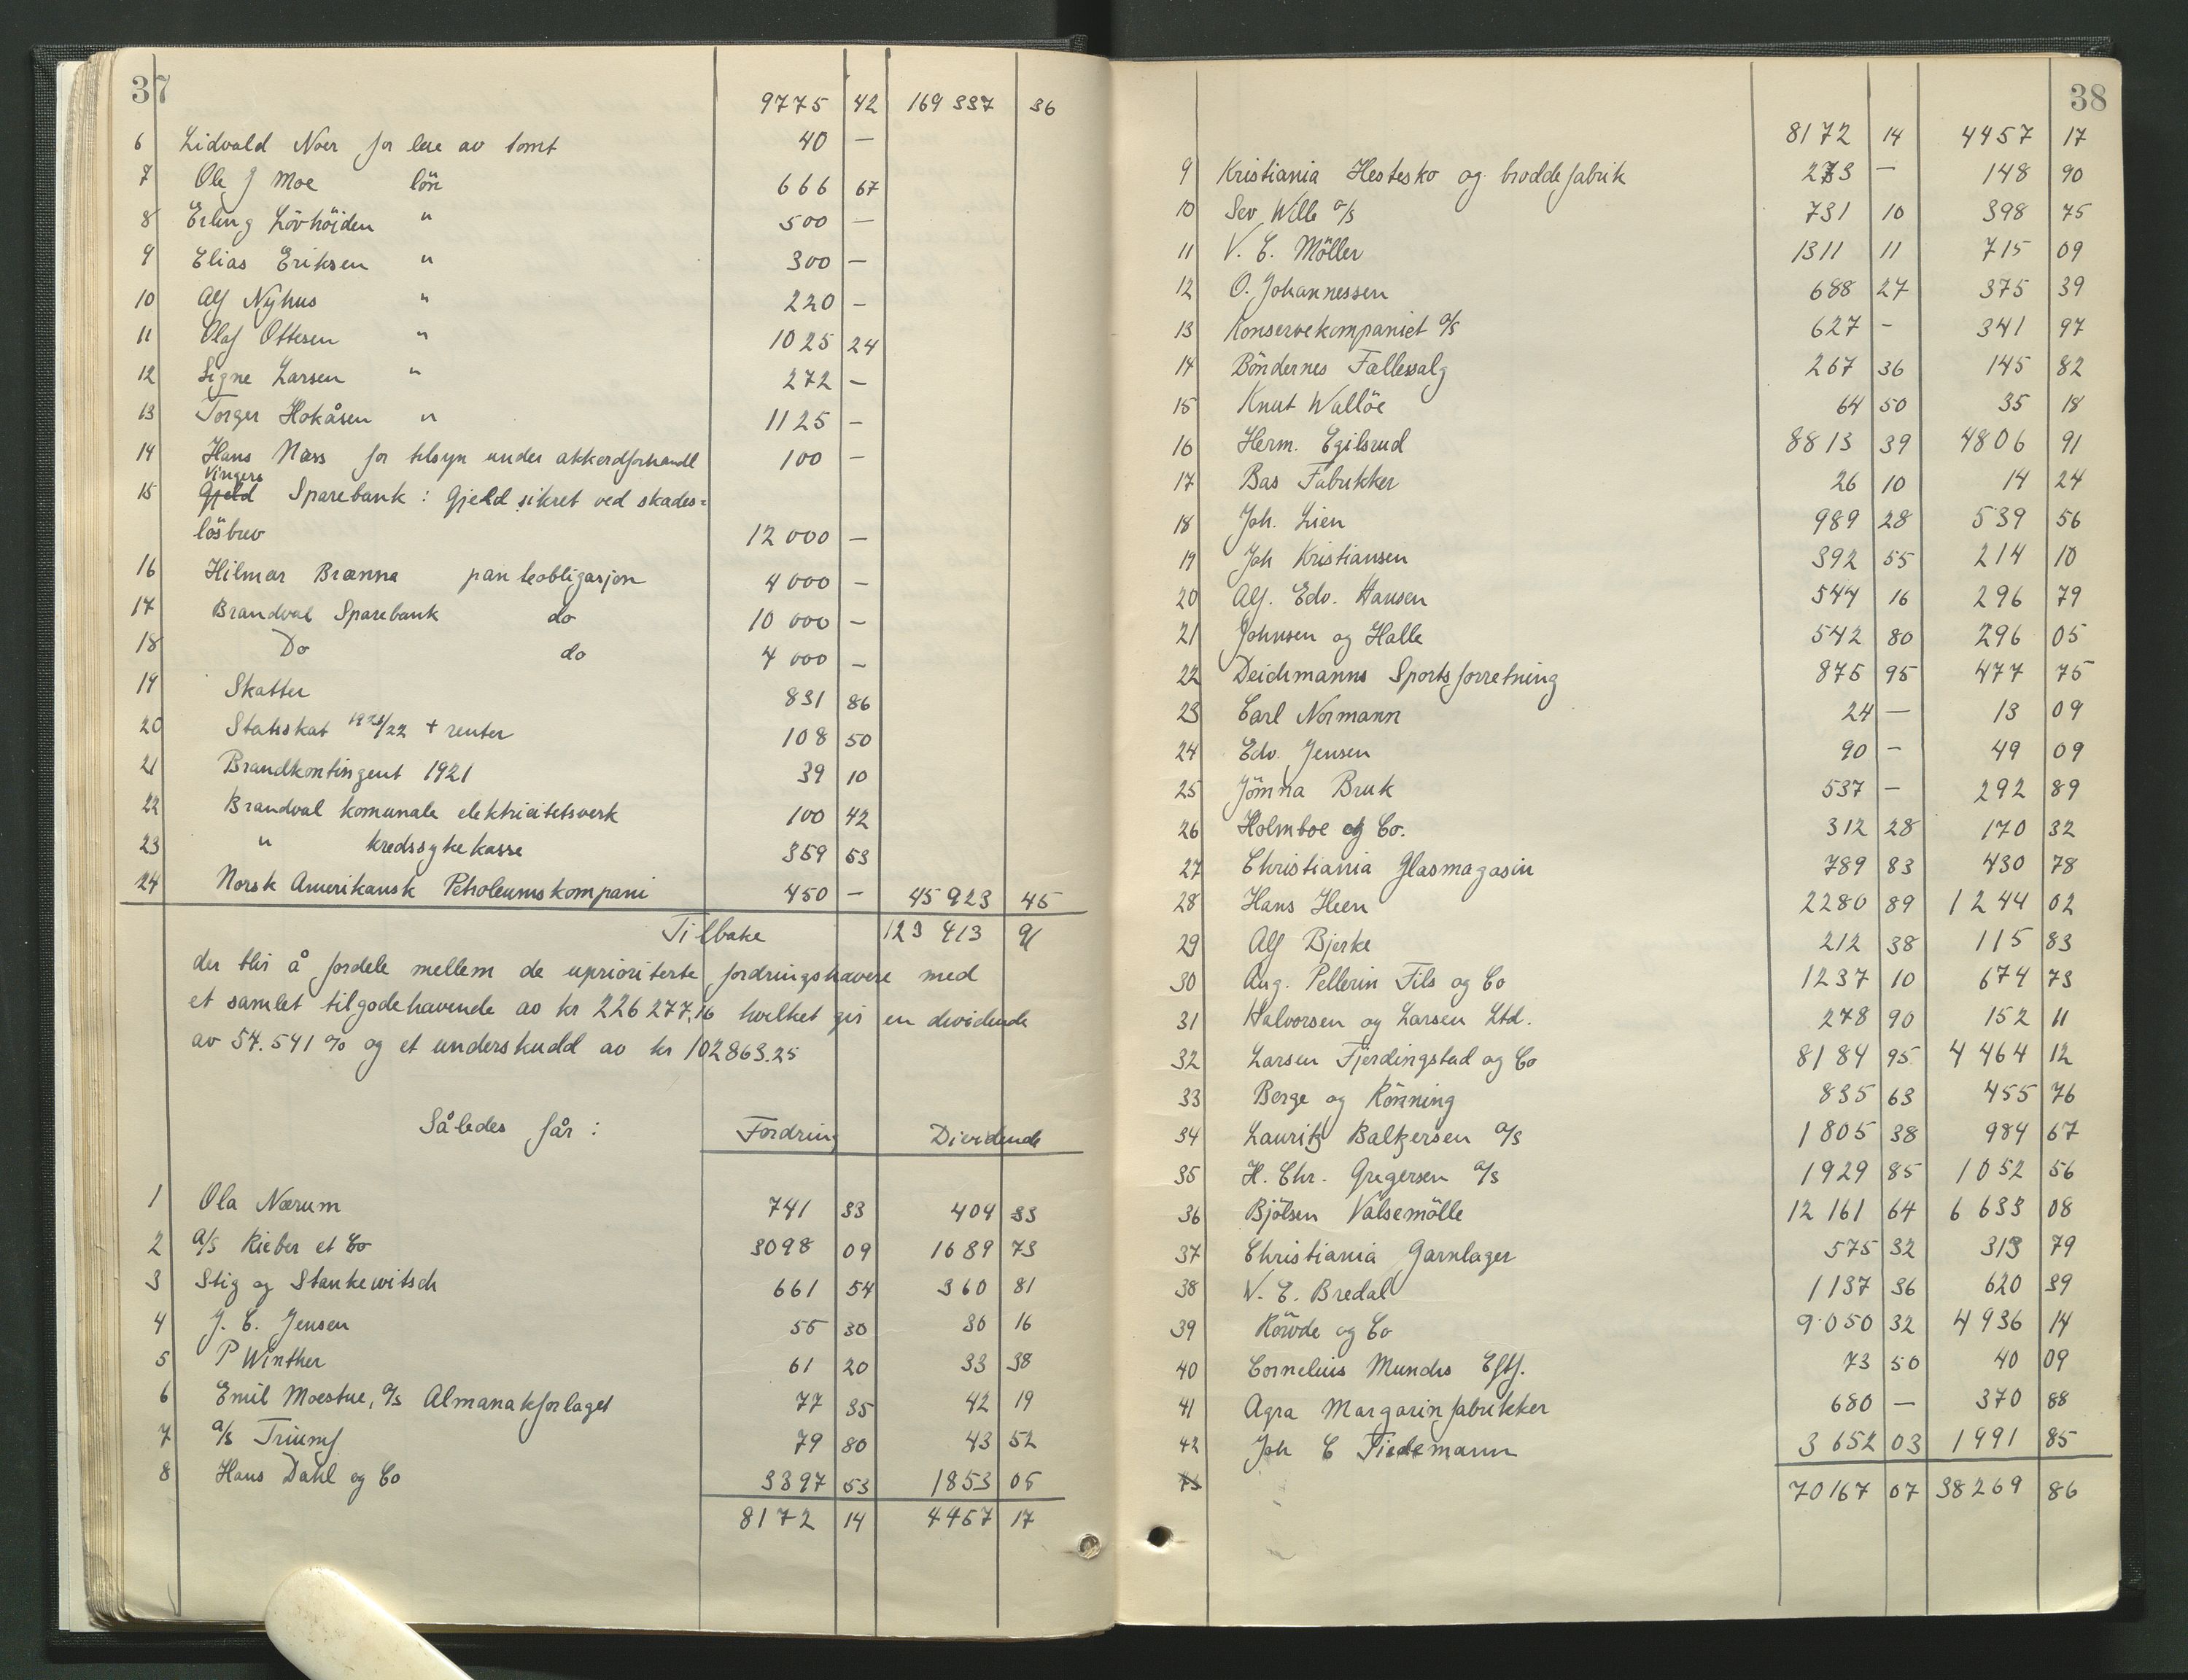 37
9775 42 169 337 36
6 Lidvald Noer for leie av tomt 40 —
7 Ole J Moe lön 666 67
8 Erling Lövhöiden " 500 —
9 Elias Eriksen " 300 —
10 Alf Nyhus " 220 —
11 Olaf Ottesen " 1025 24
12 Signe Larsen " 272 —
13 Torger Hokåsen " 1125 —
14 Hans Næss for tilsyn under akkordforhandl 100 —
Vingers
15 Gjeld Sparebank : Gjeld sikret ved skades=
lösbrev 12 000 —
16 Hilmar Brænna pantobligasjon 4 000 —
17 Brandval Sparebank do 10 000 —
18 Do do 4 000 —
19 Skatter 831 86
20 Statsskat 1921/22 + renter 108 50
21 Brandkontingent 1921 39 10
22 Brandval komunale elektricitetsverk 100 42
23 " kredssykekasse 359 53
24 Norsk Amerikansk Petroleumskompani 450 — 45 923 45
Tilbake 123 413 91
der blir å fordele mellem de uprioriterte fordringshavere med
et samlet tilgodehavende av kr 226 277,16 hvilket gir en dividende
av 54.541 % og et underskudd av kr 102863.25
Således får : Fordring Dividende
1 Ola Nærum 741 33 404 33
2 A/S Rieber et Co 3098 09 1689 73
3 Stig og Stankewitsch 661 54 360 81
4 J. C. Jensen 55 30 30 16
5 P Winther 61 20 33 38
6 Emil Moestue, A/S Almanakforlaget 77 35 42 19
7 A/S Triumf 79 80 43 52
8 Hans Dahl og Co 3397 53 1853 05
8172 14 4457 17
38
8172 14 4457 17
9 Kristiania Hestesko og broddefabrik 273 — 148 90
10 Sev. Wille A/S 731 10 398 75
11 V. C. Möller 1311 11 715 09
12 O. Johannessen 688 27 375 39
13 Konservekompaniet A/S 627 - 341 97
14 Böndernes Fællessalg 267 36 145 82
15 Knut Wallöe 64 50 35 18
16 Herm. Egilsrud 8813 39 4806 91
17 Bas Fabrikker 26 10 14 24
18 Joh. Lien 989 28 539 56
19 Joh Kristiansen 392 55 214 10
20 Alf. Edv. Hansen 544 16 296 79
21 Johnsen og Halle 542 80 296 05
22 Deichmanns Sportsforretning 875 95 477 75
23 Carl Normann 24 — 13 09
24 Edv. Jensen 90 - 49 09
25 Jömna Bruk 537 - 292 89
26 Holmboe og Co. 312 28 170 32
27 Christiania Glasmagasin 789 83 430 78
28 Hans Heen 2280 89 1244 02
29 Alf Bjerke 212 38 115 83
30 Aug. Pellerin Fils og Co 1237 10 674 73
31 Halvorsen og Larsen Ltd. 278 90 152 11
32 Larsen Fjerdingstad og Co 8184 95 4 464 12
33 Berge og Rönning 835 63 455 76
34 Lauritz Baltzersen A/S 1805 38 984 67
35 H. Chr. Gregersen A/S 1929 85 1052 56
36 Bjölsen Valsemölle 12 161 64 6 633 08
37 Christiania Garnlager 575 32 313 79
38 W. E. Bredal 1137 36 620 39
39 Röwde og Co 9.050 32 4 936 14
40 Cornelius Mundes Eftf. 73 50 40 09
41 Agra Margarinfabrikker 680 — 370 88
42 Joh C Tiedemann 3 652 03 1991 85
43 70167 07 38269 86